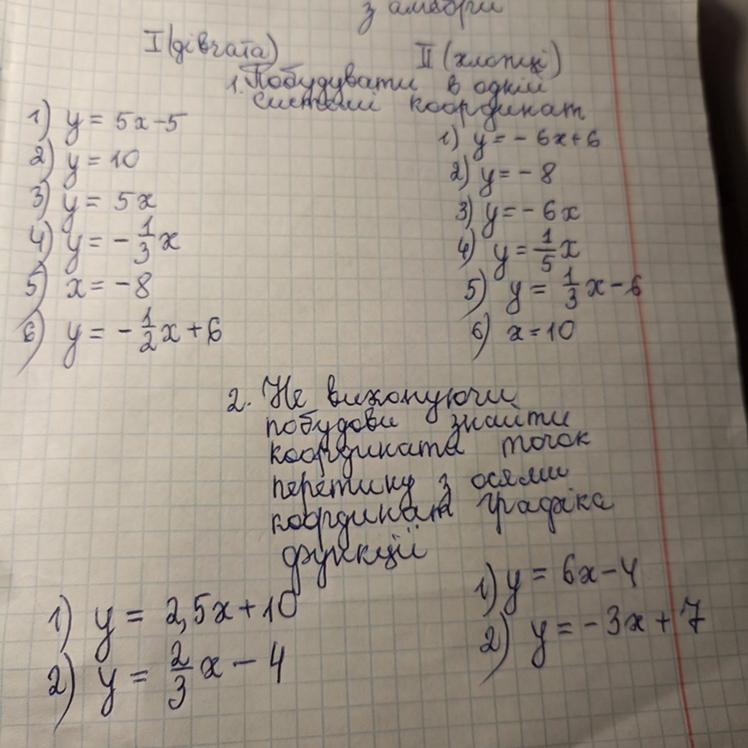 з алгебри
I (дівчата) II (хлопці)
1. Побудувати в одній
системі координат
1) y = 5x - 5
2) y = 10
3) y = 5x
4) y = - 1/3 x
5) x = - 8
6) y = - 1/2 x + 6
1) y = - 6x + 6
2) y = - 8
3) y = - 6x
4) y = 1/5 x
5) y = 1/3 x - 6
6) x = 10
2. Не виконуючи
побудови знайти
координати точок
перетину з осями
координат графіка
функції
1) y = 2,5x + 10
2) y = 2/3 x - 4
1) y = 6x - 4
2) y = - 3x + 7